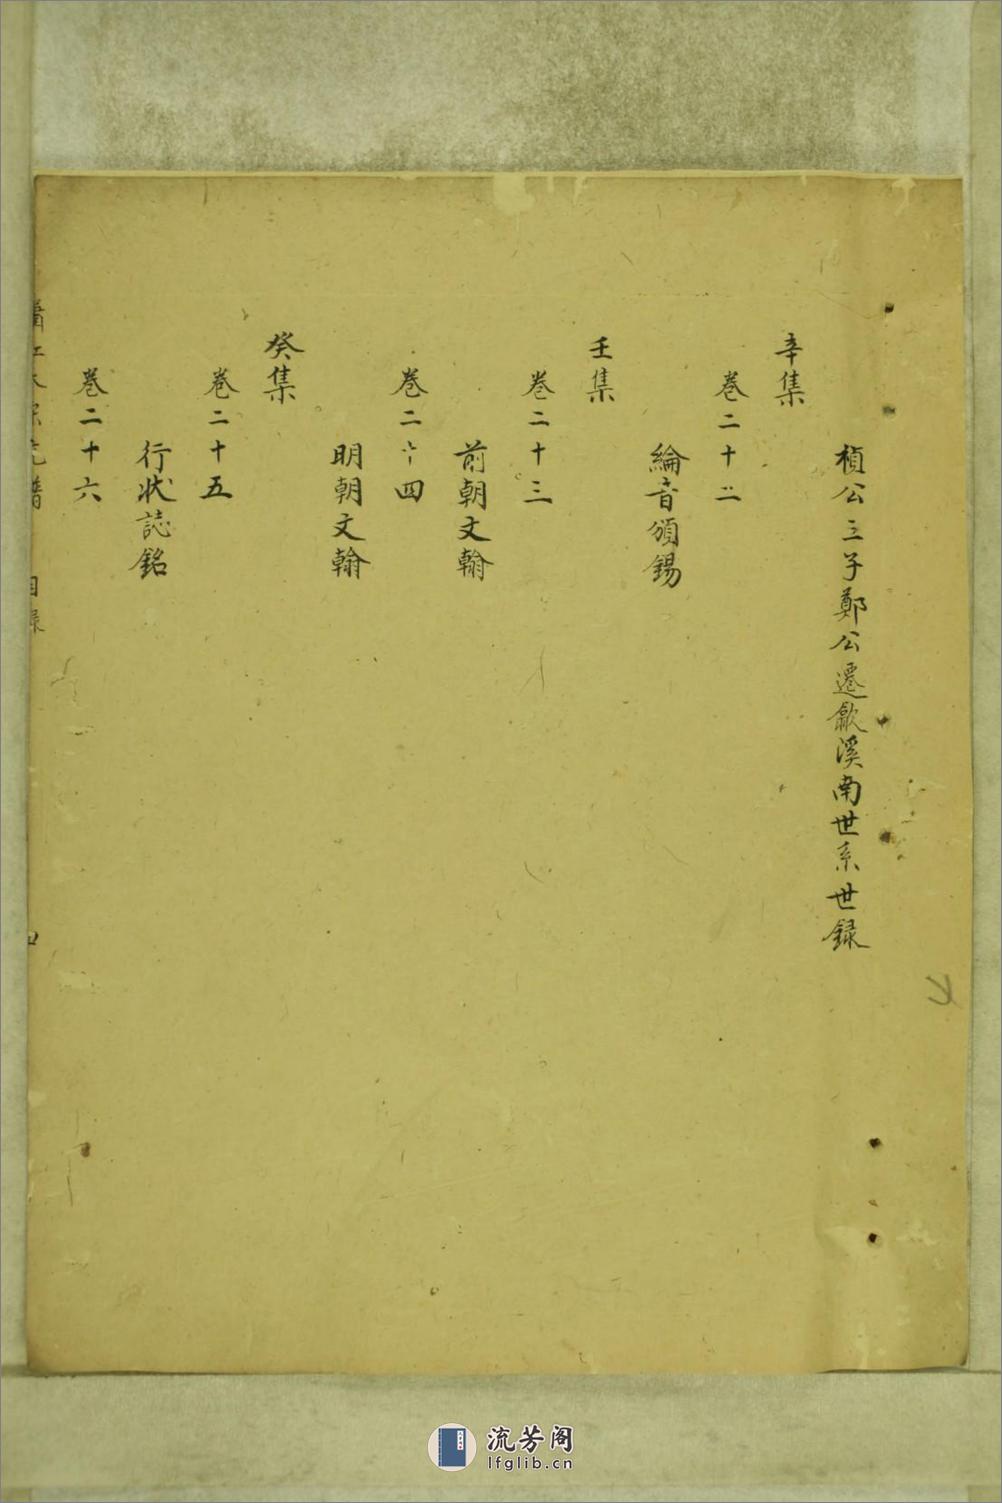 楨公三子鄭公遷歙溪南世系世録
辛集
卷二十二
綸音頒錫
壬集
卷二十三
前朝文翰
卷二十四
明朝文翰
癸集
卷二十五
行狀誌銘
卷二十六
目録
四
七
流芳阁
lfglib.cn